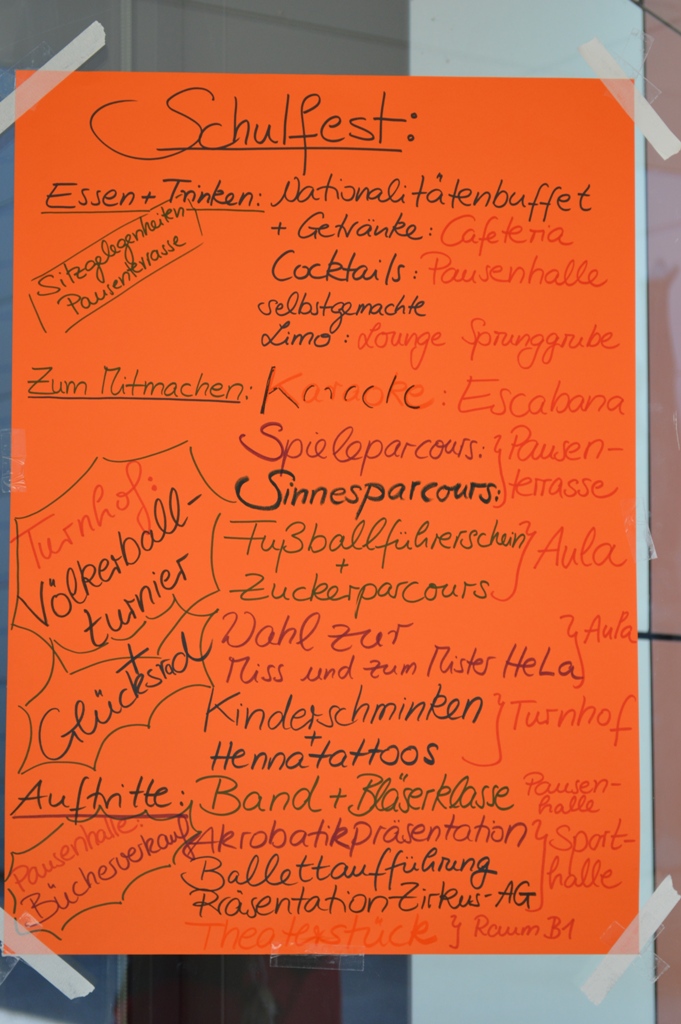 Schulfest:
Essen + Trinken: Nationalitätenbuffet
+ Getränke: Cafeteria
Sitzgelegenheiten
Pausenterrasse
Cocktails: Pausenhalle
selbstgemachte
Limo: Lounge Sprunggrube
Zum Mitmachen: Karaoke: Escabana
Spieleparcours: } Pausen-
Sinnesparcours: terrasse
Turnhof:
Völkerball-
turnier
+
Glücksrad
Fußballführerschein } Aula
+
Zuckerparcours
Wahl zur } Aula
Miss und zum Mister HeLa
Kinderschminken } Turnhof
+
Hennatattoos
Auftritte: Band + Bläserklasse Pausen-
halle
Pausenhalle:
Bücherverkauf
Akrobatikpräsentation } Sport-
Ballettaufführung halle
Präsentation Zirkus-AG
Theaterstück } Raum B1